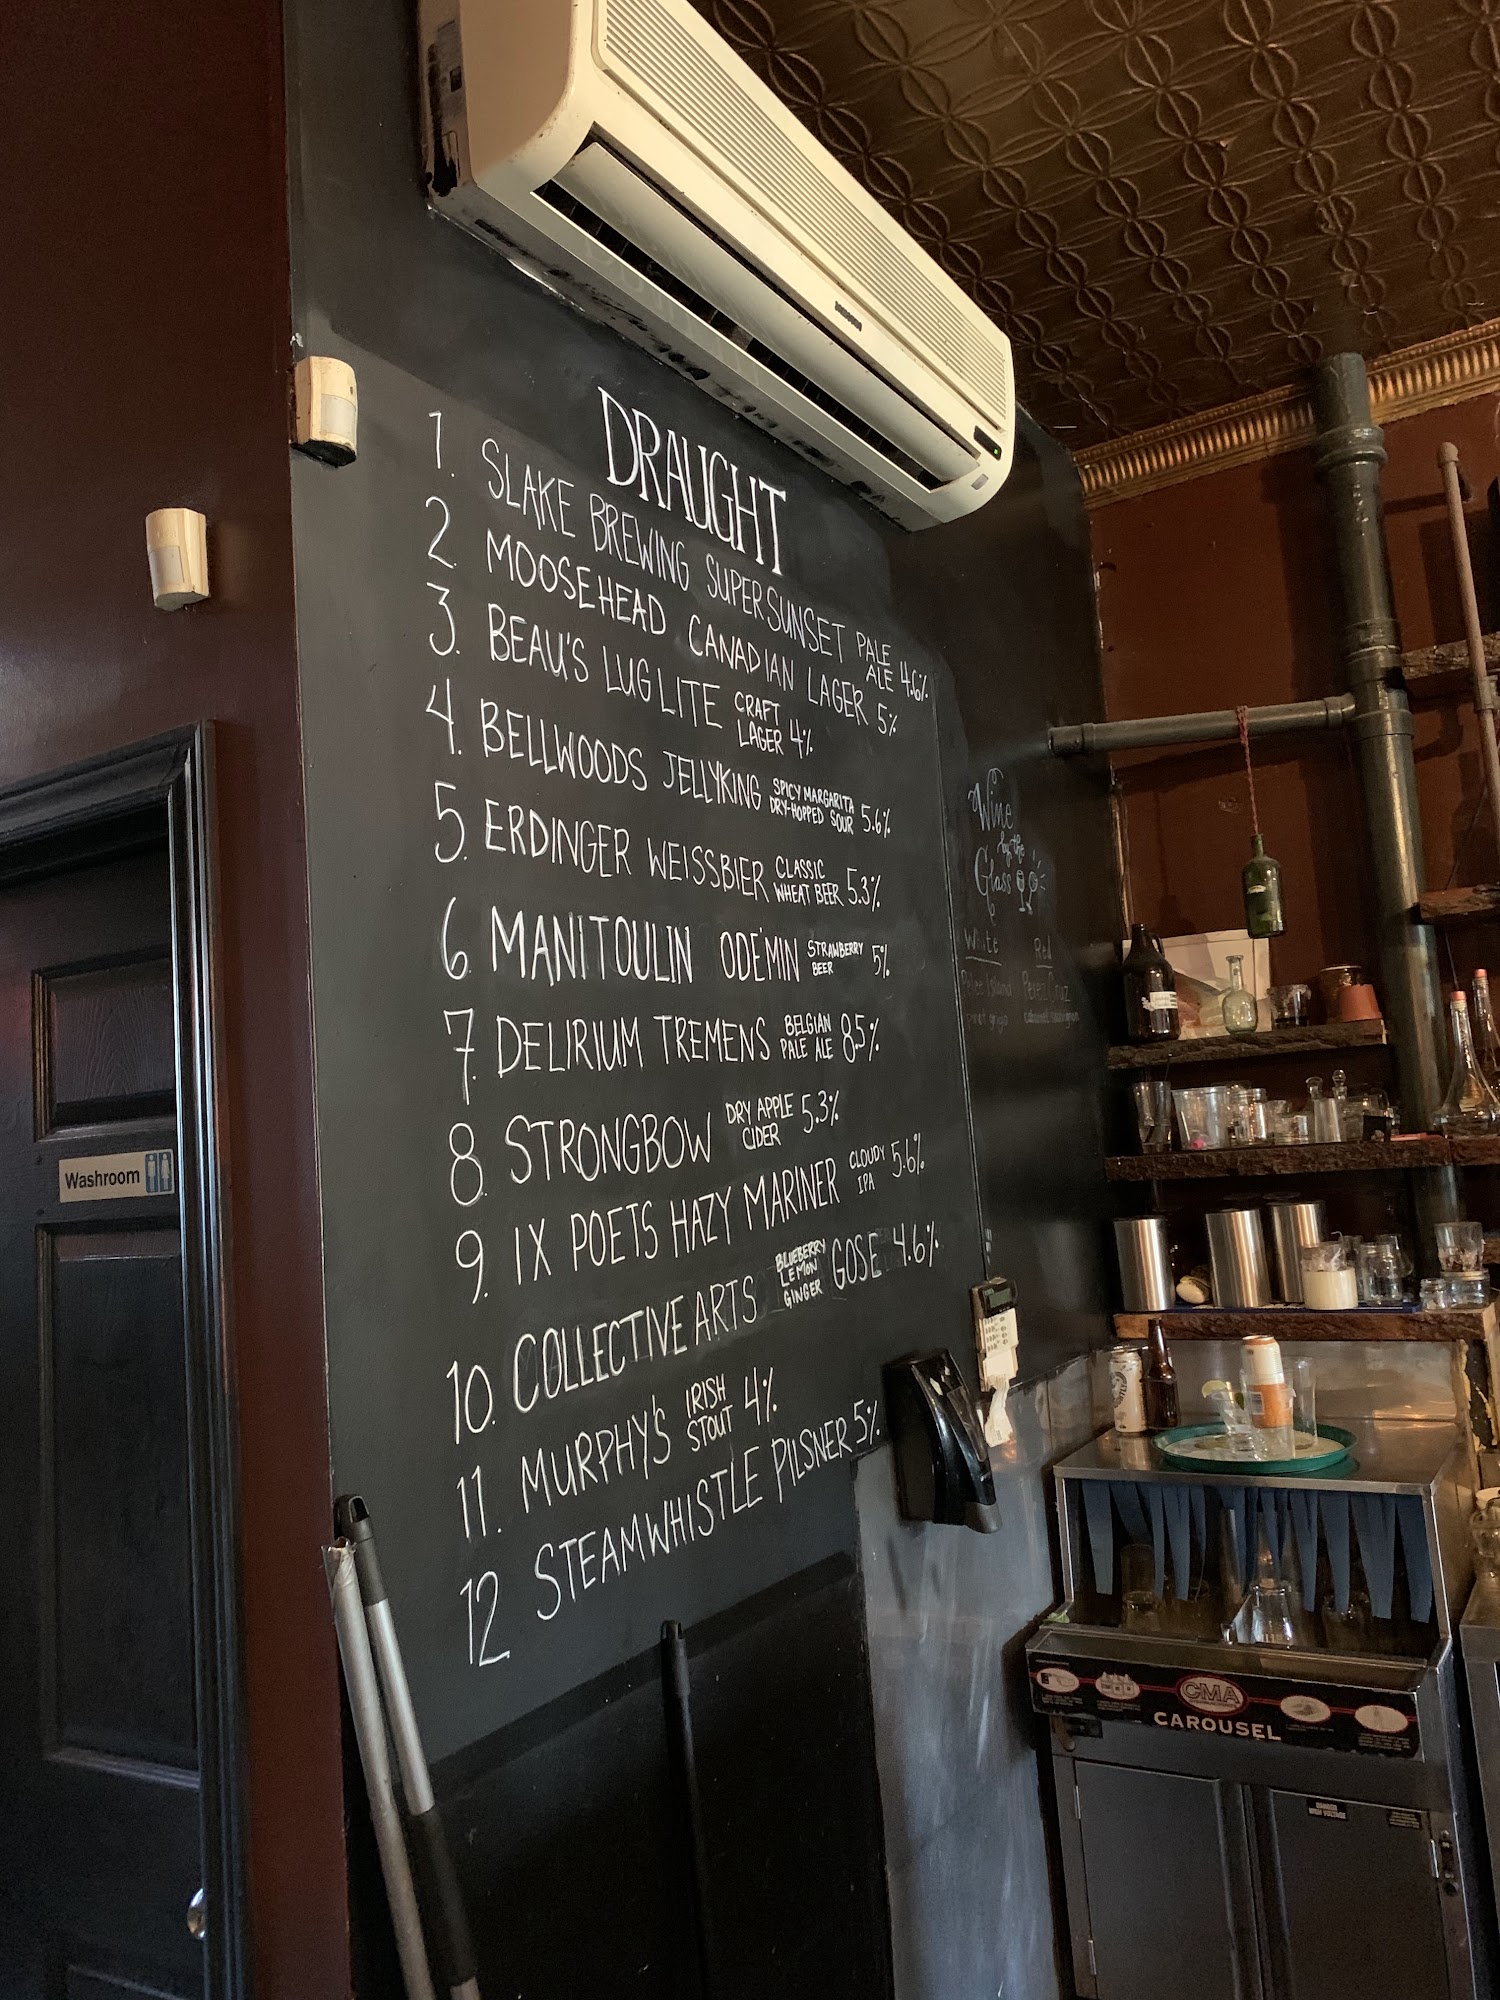 SAMSUNG
DRAUGHT
1. SLAKE BREWING SUPERSUNSET PALE ALE 4.6%
2. MOOSEHEAD CANADIAN LAGER 5%
3. BEAU'S LUG LITE CRAFT LAGER 4%
4. BELLWOODS JELLYKING SPICY MARGARITA DRY-HOPPED SOUR 5.6%
5. ERDINGER WEISSBIER CLASSIC WHEAT BEER 5.3%
6 MANITOULIN ODE'MIN STRAWBERRY BEER 5%
7. DELIRIUM TREMENS BELGIAN PALE ALE 8.5%
8. STRONGBOW DRY APPLE CIDER 5.3%
9. IX POETS HAZY MARINER CLOUDY IPA 5.6%
10. COLLECTIVE ARTS BLUEBERRY LEMON GINGER GOSE 4.6%
11. MURPHY'S IRISH STOUT 4%
12 STEAMWHISTLE PILSNER 5%
Wine
by the
Glass
White Red
Pelee Island Perez Cruz
pinot grigio cabernet sauvignon
Washroom
CMA
CAROUSEL
DANGER
HIGH VOLTAGE